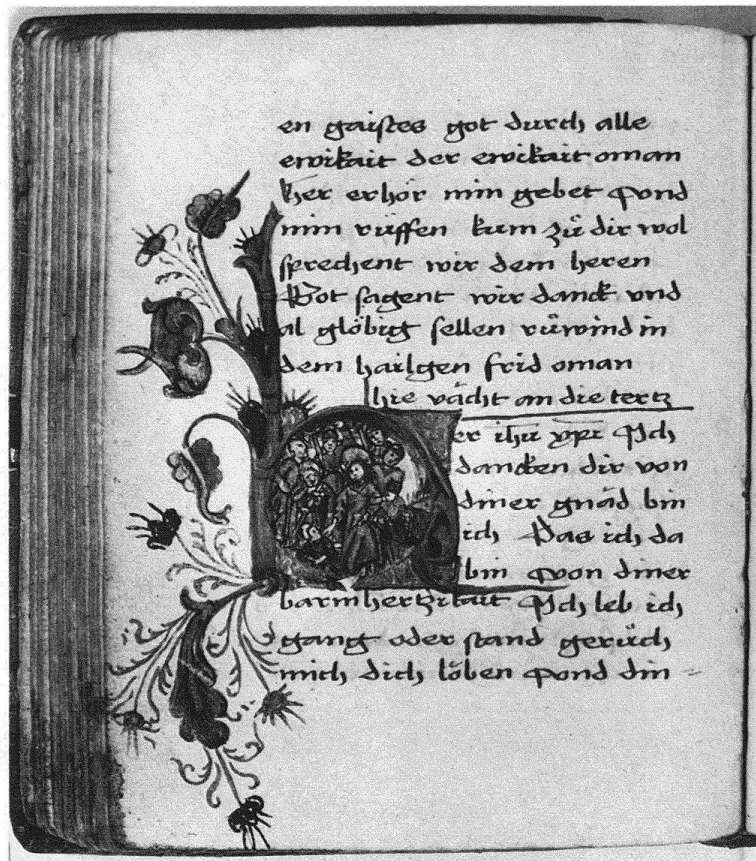 en gaistes got durch alle
ewikait der ewikait oman
her erhör min gebet vond
mim rüffen kum zů dir wol
sprechent wir dem heren
Got sagent wir danck vnd
al glöbig sellen růwind in
dem hailgen frid oman
hie vächt an die tertz
er ihū xp̄e Ich
dancken dir von
diner gnäd bin
ich Das ich da
bin von diner
barmhertzikait Ich leb ich
gang oder stand gerüch
mich dich löben vond din=